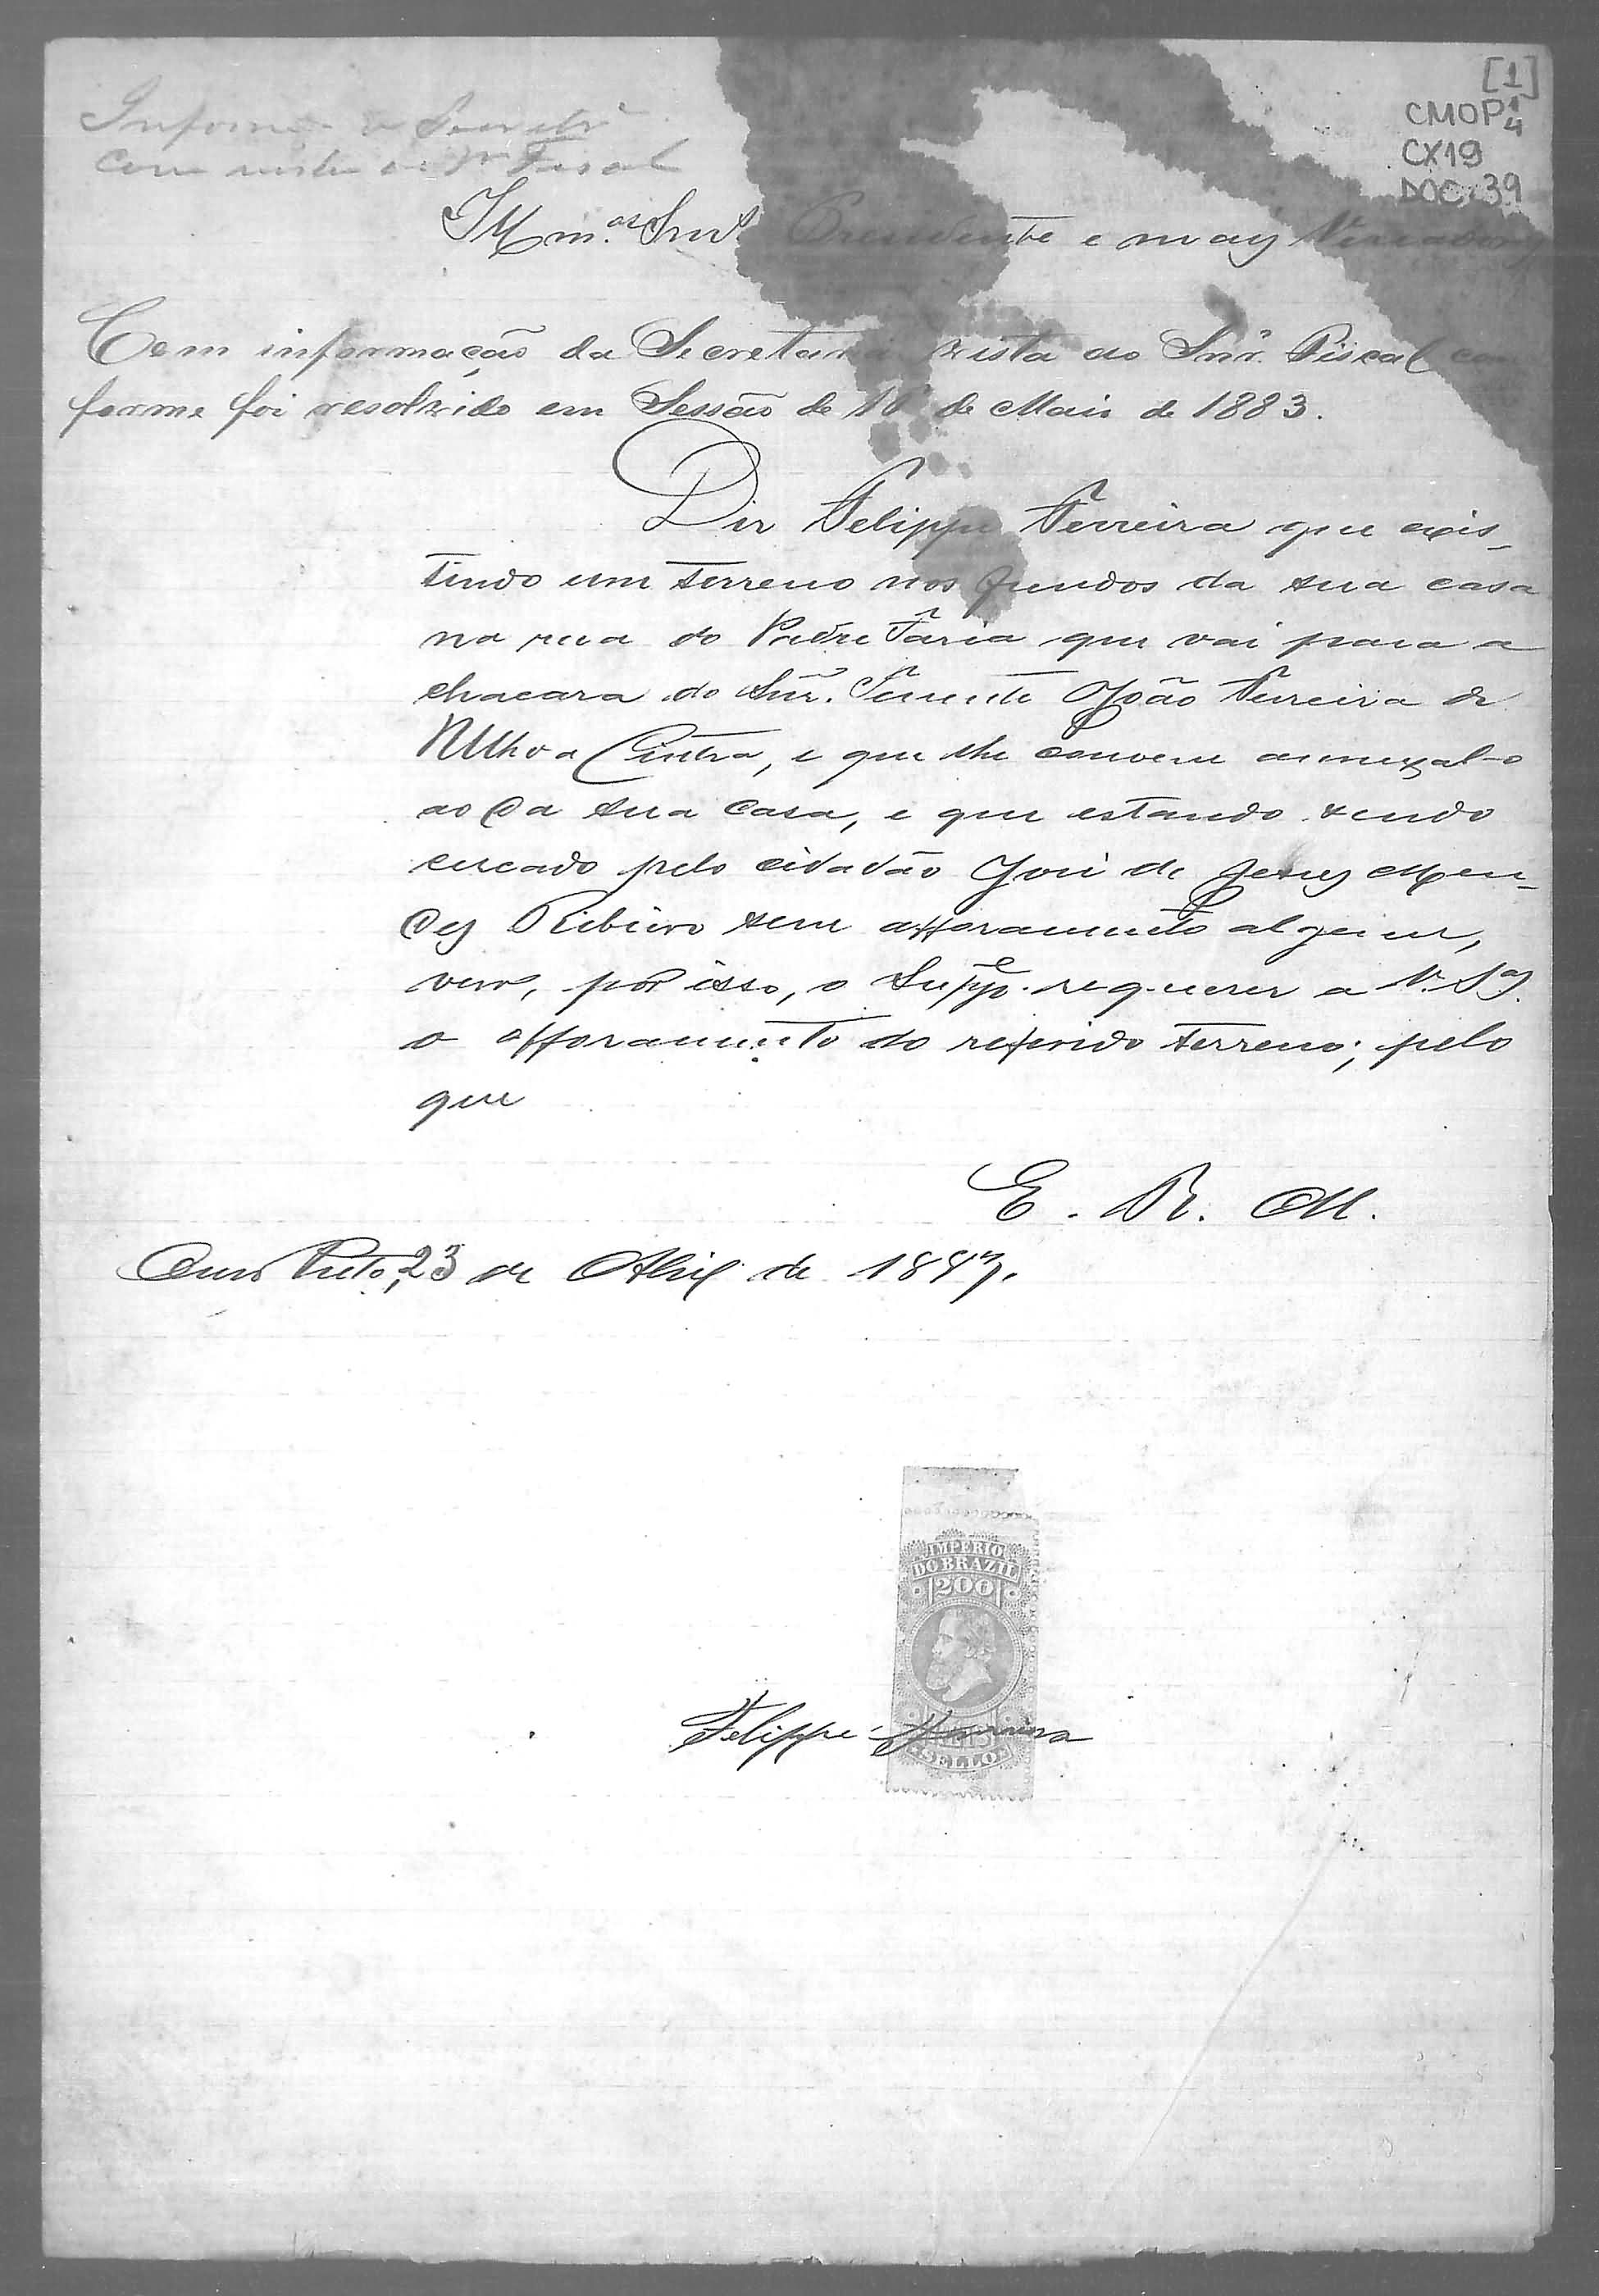 [1]
CMOP 1/4
CX19
DOC. 39
Informe a Secretrª
com vista ao Sr Fiscal
Illm.os Snrs. Presidente e mais Vereadores
Com informação da Secretaria vista ao Snr. Fiscal con
forme foi resolvido em Sessão de de Maio de 1883.
Diz Felippe Ferreira que exis-
tindo um terreno nos fundos da sua casa
na rua do Padre Faria que vai para a
chacara do Snr. Tenente João Ferreira de
Ulhoa Cintra, e que lhe convem annexal-o
ao da sua casa, e que estando sendo
cercado pelo cidadão José de Jesus Men-
des Ribeiro sem afforamento algum,
vem, por isso, o Suppe. requerer a V. Sas.
o afforamento do referido terreno; pelo
que
E. R. M.
Ouro Preto, 23 de Abril de
IMPERIO
DO BRAZIL
200
REIS
SELLO
Felippe Ferreira